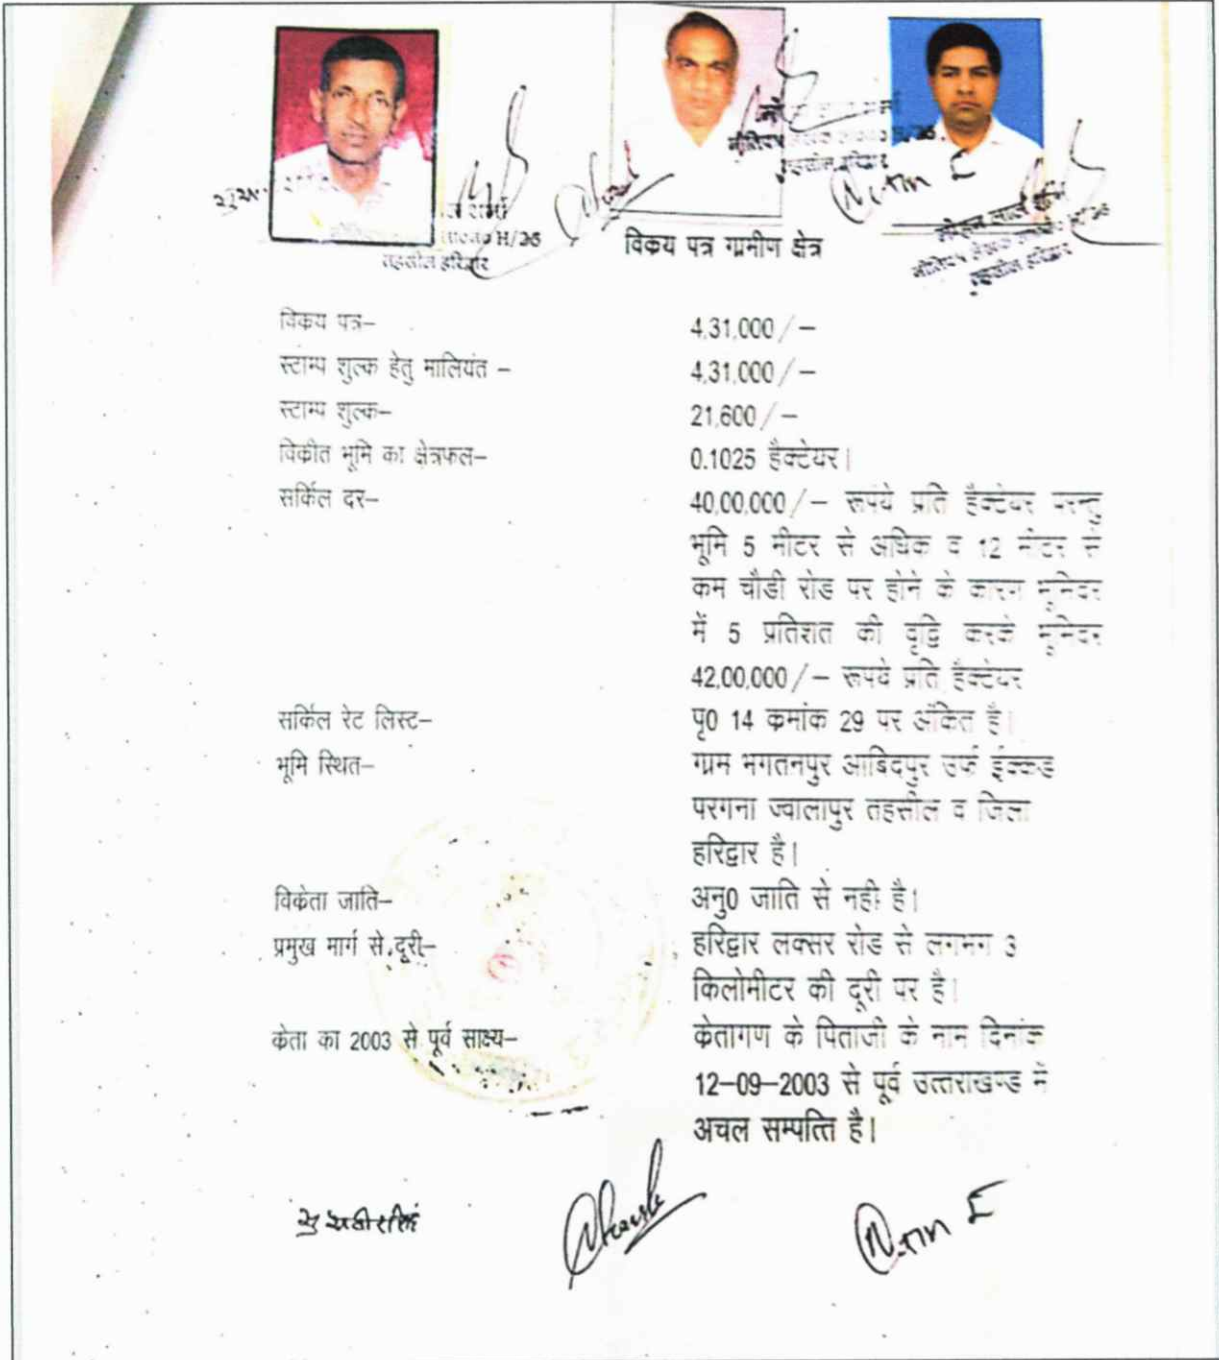 विक्रय पत्र ग्रामीण क्षेत्र
तहसील हरिद्वार
तहसील हरिद्वार
तहसील हरिद्वार
विक्रय पत्र–
4,31,000/–
स्टाम्प शुल्क हेतु मालियंत –
4,31,000/–
स्टाम्प शुल्क–
21,600/–
विक्रीत भूमि का क्षेत्रफल–
0.1025 हैक्टेयर।
सर्किल दर–
40,00,000/– रूपये प्रति हैक्टेयर परन्तु
भूमि 5 मीटर से अधिक व 12 मीटर से
कम चौडी रोड पर होने के कारण भूमिदर
में 5 प्रतिशत की वृद्वि करके भूमिदर
42,00,000/– रूपये प्रति हैक्टेयर
सर्किल रेट लिस्ट–
पृ0 14 क्रमांक 29 पर अंकित है।
भूमि स्थित–
ग्राम भगतनपुर आबिदपुर उर्फ ईक्कड
परगना ज्वालापुर तहसील व जिला
हरिद्वार है।
विक्रेता जाति–
अनु0 जाति से नही है।
प्रमुख मार्ग से दूरी–
हरिद्वार लक्सर रोड से लगभग 3
किलोमीटर की दूरी पर है।
क्रेता का 2003 से पूर्व साक्ष्य–
क्रेतागण के पिताजी के नाम दिनांक
12–09–2003 से पूर्व उत्तराखण्ड में
अचल सम्पत्ति है।